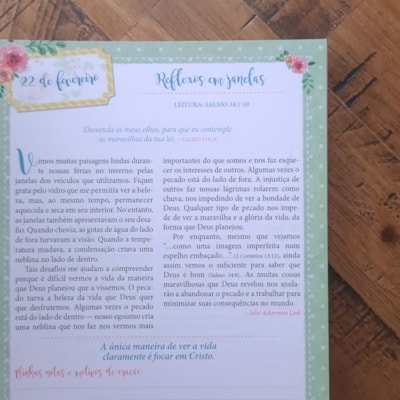 22 de fevereiro
Reflexos em janelas
LEITURA: SALMO 34:1-10
Desvenda os meus olhos, para que eu contemple
as maravilhas da tua lei. —SALMO 119:18
Vimos muitas paisagens lindas duran-
te nossas férias no inverno pelas
janelas dos veículos que utilizamos. Fiquei
grata pelo vidro que me permitia ver a bele-
za, mas, ao mesmo tempo, permanecer
aquecida e seca em seu interior. No entanto,
as janelas também apresentavam o seu desa-
fio. Quando chovia, as gotas de água do lado
de fora turvavam a visão. Quando a tempe-
ratura mudava, a condensação criava uma
neblina no lado de dentro.
Tais desafios me ajudam a compreender
porque é difícil vermos a vida da maneira
que Deus planejou que a víssemos. O peca-
do turva a beleza da vida que Deus quer
que desfrutemos. Algumas vezes o pecado
está do lado de dentro — nosso egoísmo cria
uma neblina que nos faz nos vermos mais
importantes do que somos e nos faz esque-
cer os interesses de outros. Algumas vezes o
pecado está do lado de fora. A injustiça de
outros faz nossas lágrimas rolarem como
chuva, nos impedindo de ver a bondade de
Deus. Qualquer tipo de pecado nos impe-
de de ver a maravilha e a glória da vida, da
forma que Deus planejou.
Por enquanto, mesmo que vejamos
“...como uma imagem imperfeita num
espelho embaçado...” (1 Coríntios 13:12), ainda
assim vemos o suficiente para saber que
Deus é bom (Salmo 34:8). As muitas coisas
maravilhosas que Deus revelou nos ajuda-
rão a abandonar o pecado e a trabalhar para
minimizar suas consequências no mundo.
—Julie Ackerman Link
A única maneira de ver a vida
claramente é focar em Cristo.
Minhas notas e motivos de oração: